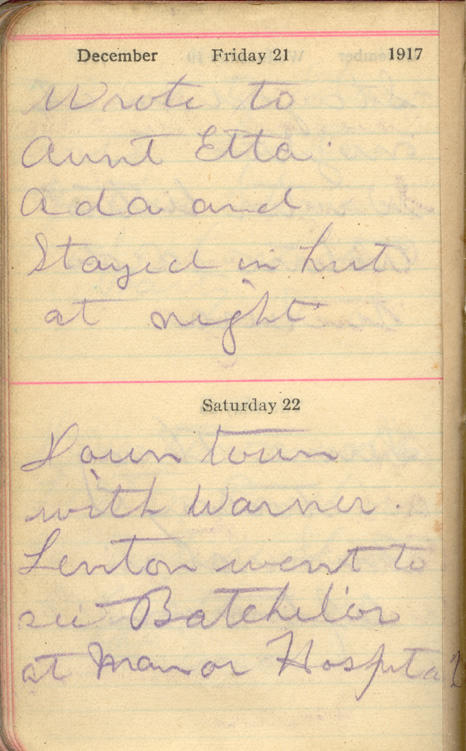 December Friday 21 1917
Wrote to
Aunt Etta.
Ada and
Stayed in hut
at night.
Saturday 22
Down town
with Warner.
Lenton went to
see Batchelor
at Manor Hospital